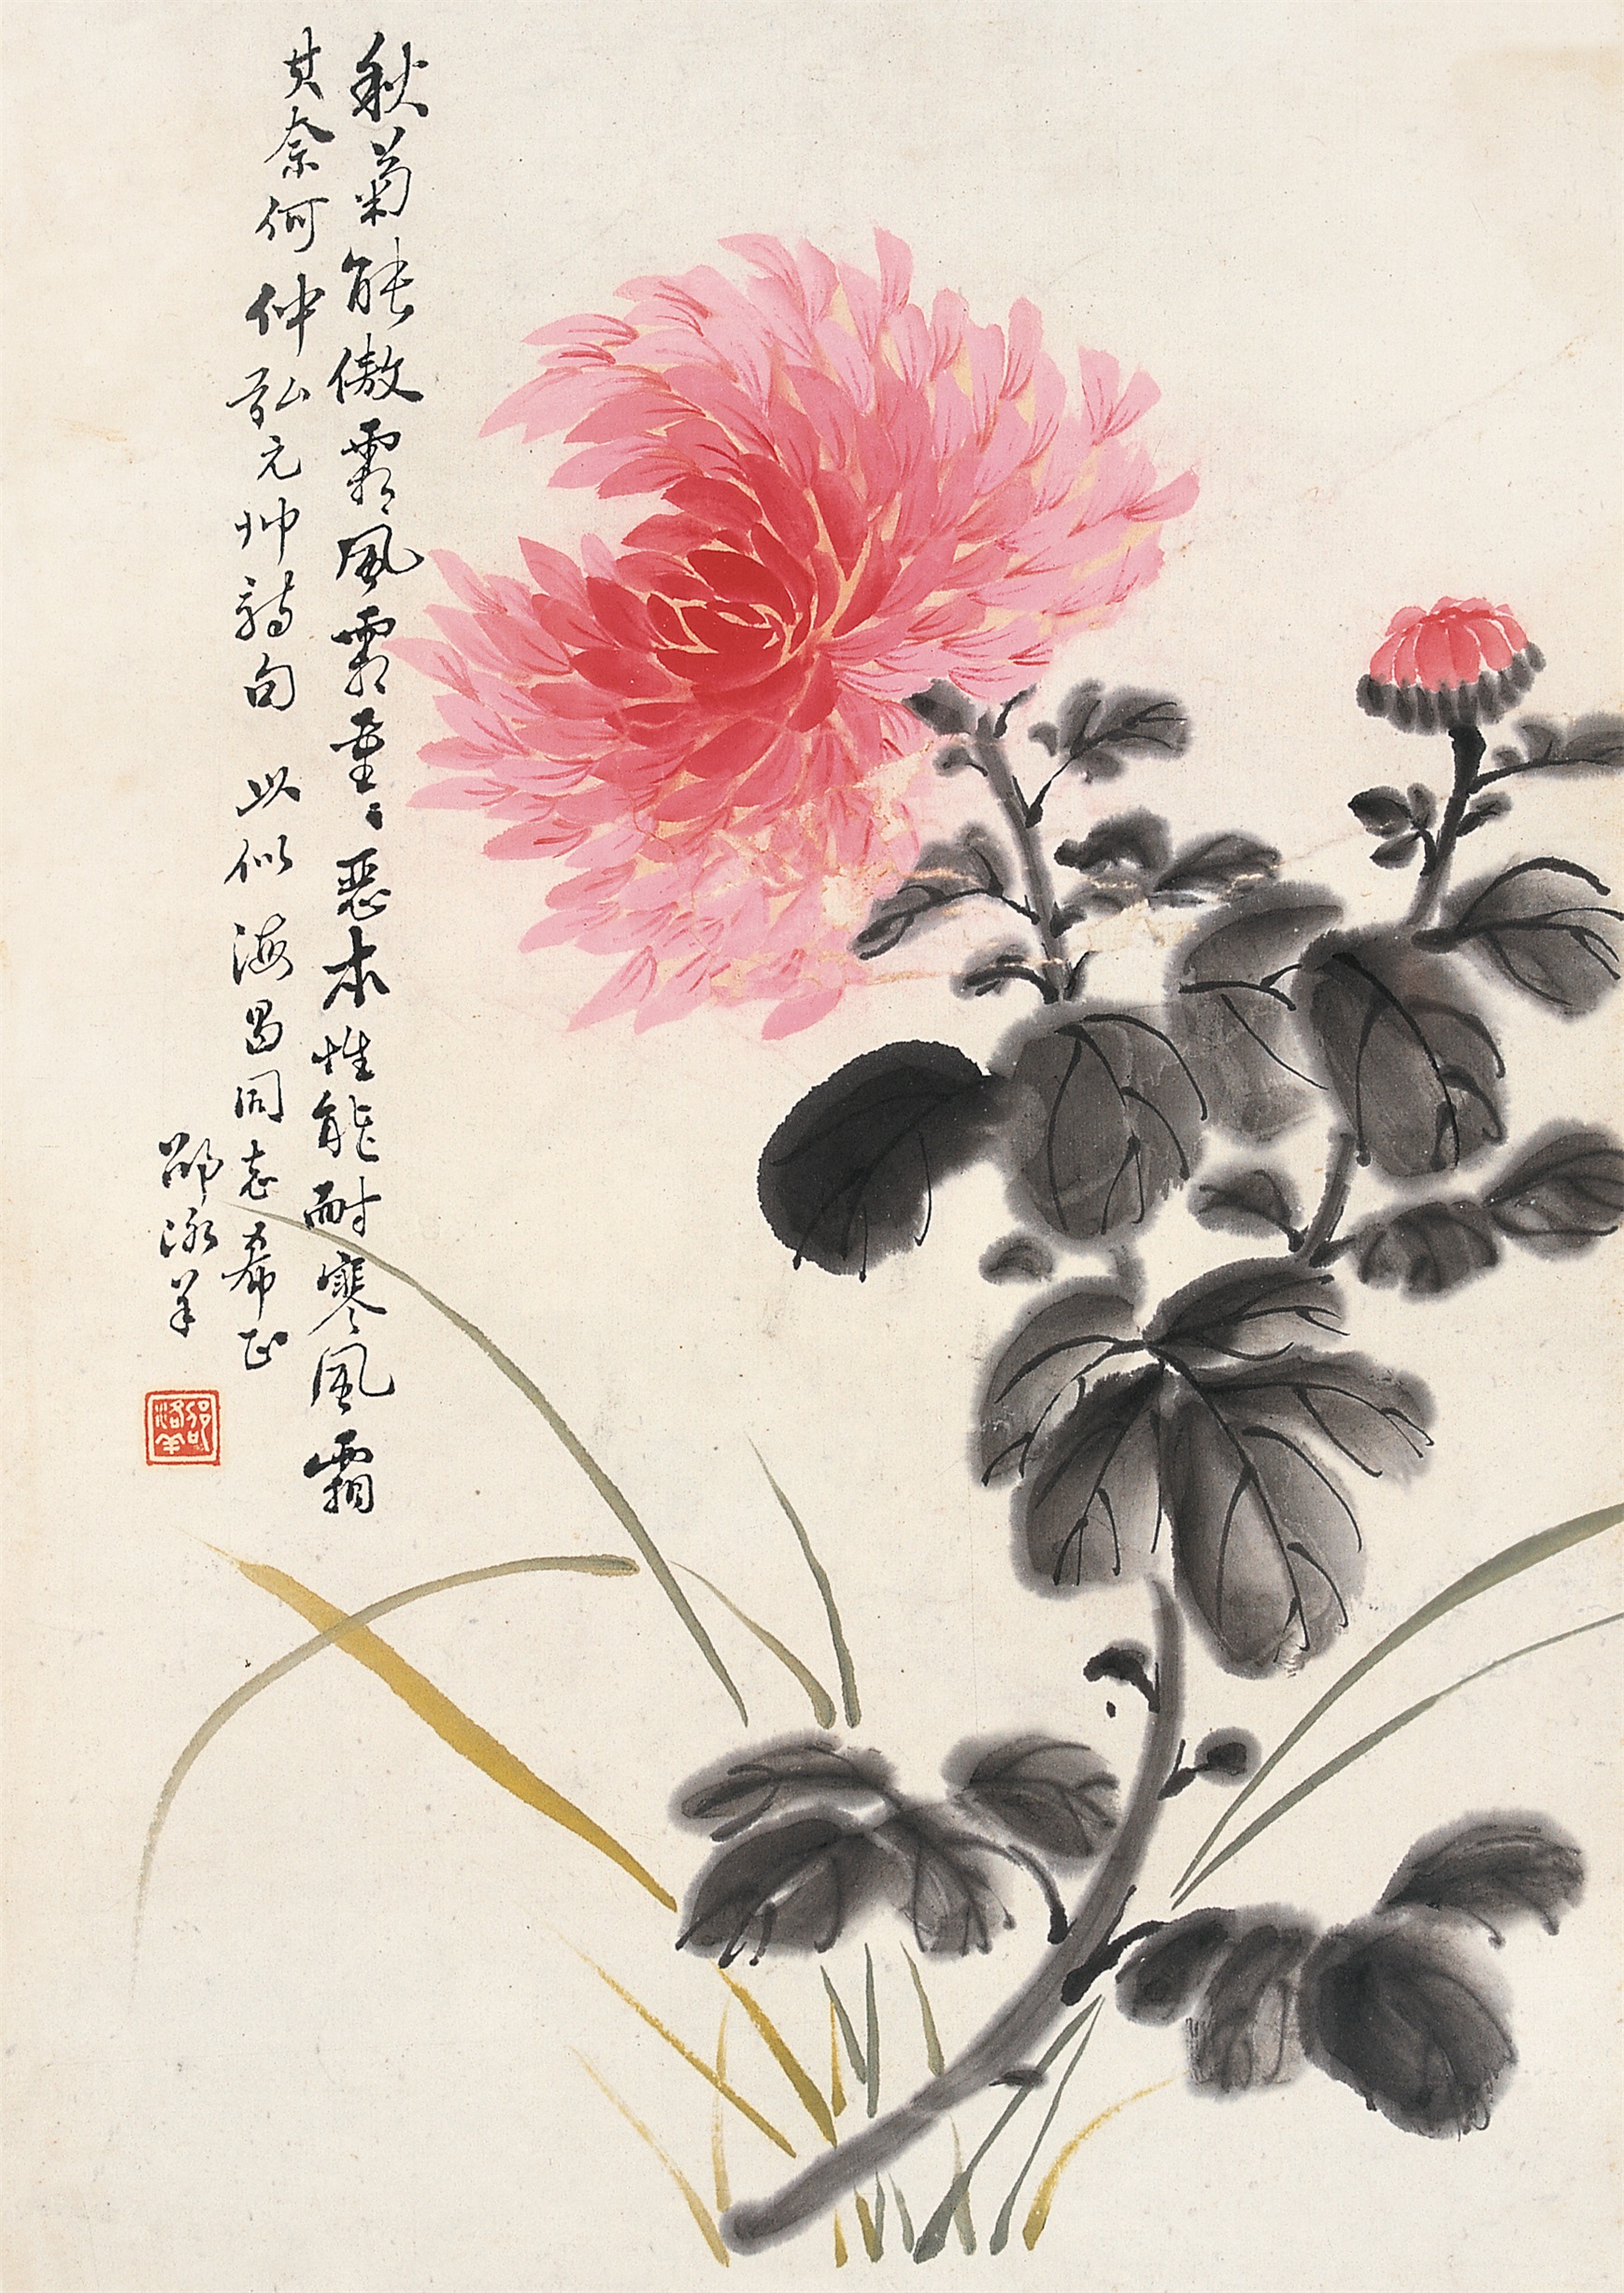 秋菊能傲霜风霜重重恶本性能耐寒风霜
其奈何仲弘元帅诗句 以似海昌同志希正
邵洛羊
邵洛羊